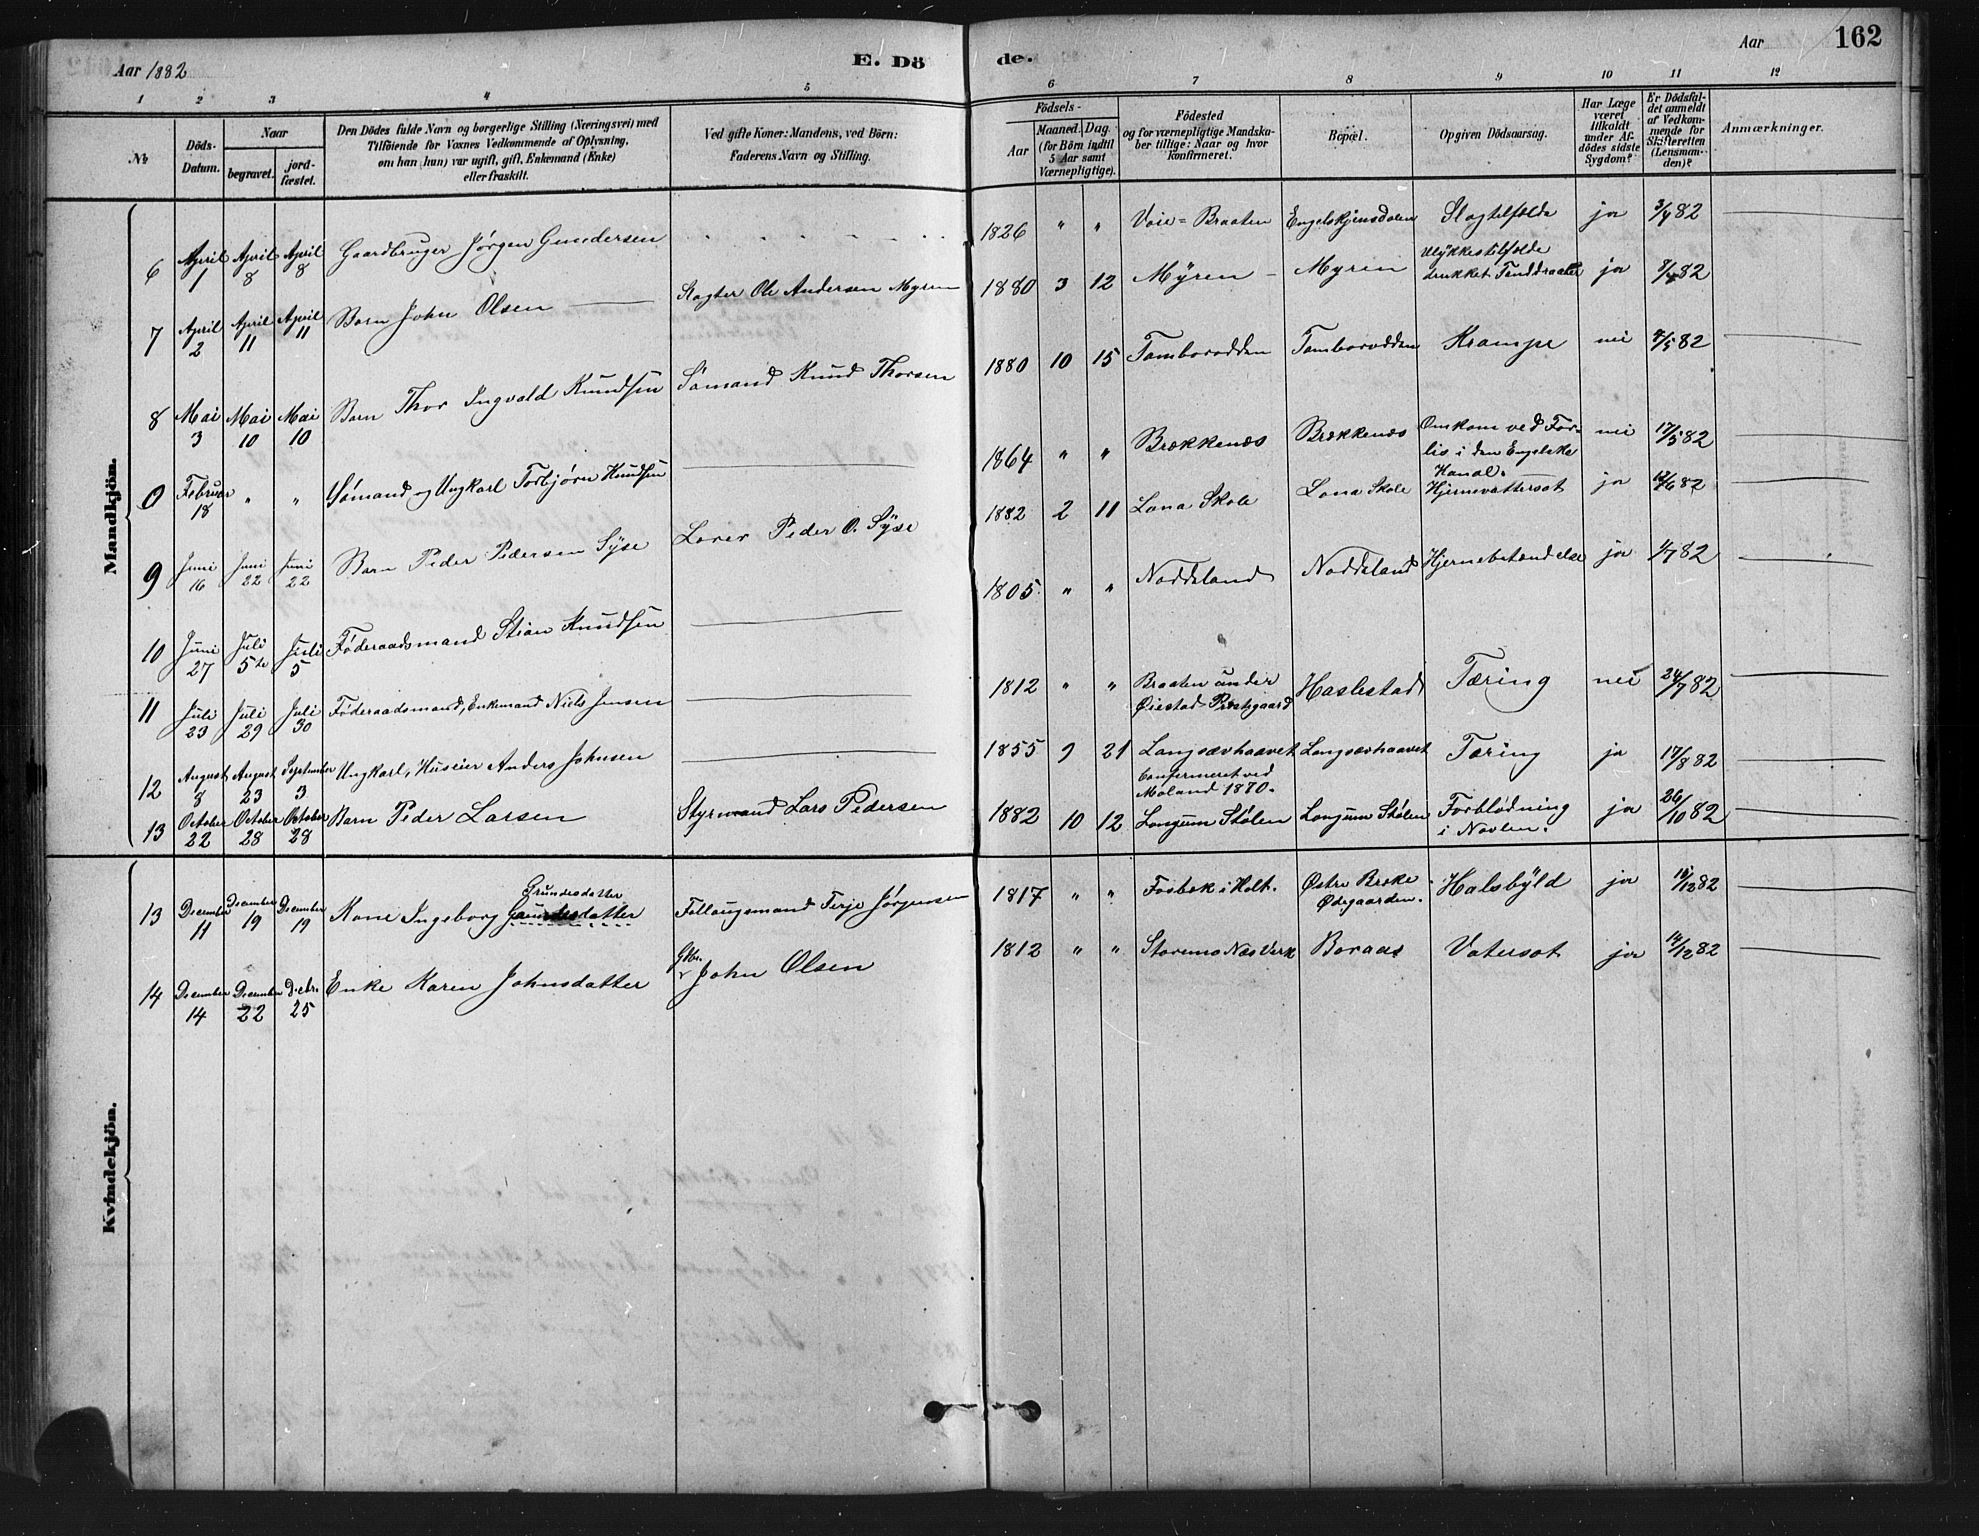 Aar 1882
E. Dö
de.
Aar
162
1 2 3 4 5 6 7 8 9 10 11 12
No
Döds-
Datum.
Naar
begravet.
jord-
fæstet.
Den Dödes fulde Navn og borgerlige Stilling (Næringsvei) med
Tilföiende for Voxnes Vedkommende af Oplysning,
om han (hun) var ugift, gift, Enkemand (Enke)
eller fraskilt.
Ved gifte Koner: Mandens, ved Börn:
Faderens Navn og Stilling.
Födsels-
Aar
Maaned. Dag.
(for Börn indtil
5 Aar samt
Værnepligtige).
Födested
og for værnepligtige Mandska-
ber tillige: Naar og hvor
konfirmeret.
Bopæl.
Opgiven Dödsaarsag.
Har Læge
været
tilkaldt
under Af-
dödes sidste
Sygdom?
Er Dödsfal-
det anmeldt
af Vedkom-
mende for
Skifteretten
(Lensman-
den)?
Anmærkninger.
Mandkjön.
6 April 1 April 8 April 8 Gaardbruger Jørgen Gundersen 1826 " " Voie=Braaten Engelskjønsdalen Slagtilfælde ja 3/4 82
7 April 2 April 11 April 11 Barn John Olsen Slagter Ole Andersen Myren 1880 3 12 Myren Myren Ulykkestilfælde
drukket Tinddraaber ja 8/4 82
8 Mai 3 Mai 10 Mai 10 Barn Thor Ingvald Knudsen Sømand Knud Thorsen 1880 10 15 Tamborodden Tamborodden Krampe nei 7/5 82
0 Februar 18 " " Sømand og Ungkarl Torbjørn Knudsen 1864 " " Brækkenæs Brækkenæs Omkom ved For-
lis i den Engelske
Kanal. nei 17/5 82
9 Juni 16 Juni 22 Juni 22 Barn Peder Pedersen Syse Lærer Peder O. Syse 1882 2 11 Lona Skole Lona Skole Hjernevattersot ja 16/6 82
10 Juni 27 Juli 5te Juli 5 Føderaadsmand Stian Knudsen 1805 " " Noddeland Noddeland Hjernebetændelse ja 1/7 82
11 Juli 23 Juli 29 Juli 30 Føderaadsmand, Enkemand Niels Jensen 1812 " " Braaten under
Øiestad Præstgaard Haslestad Tæring nei 24/7 82
12 August 8 August 23 September 3 Ungkarl, Huseier Anders Johnsen 1855 9 21 Langsævhaavet
Confirmeret ved
Moland 1870. Langsævhaavet Tæring ja 17/8 82
13 October 22 October 28 October 28 Barn Peder Larsen Styrmand Lars Pedersen 1882 10 12 Longum Skolen Longum Skolen Forblødning
i Navlen. ja 26/10 82
Kvindekjön.
13 December 11 December 19 December 19 Kone Ingeborg Grundesdatter Follaugsmand Terje Jørgensen 1817 " " Fosbæk i Holt. Østre Bræke
Ødegaarden. Halsbyld ja 18/12 82
14 December 14 December 22 Decbr. 25 Enke Karen Johnsdatter Gbr. John Olsen 1812 " " Storemo Næs Verk Boraas Vatersot ja 14/12 82